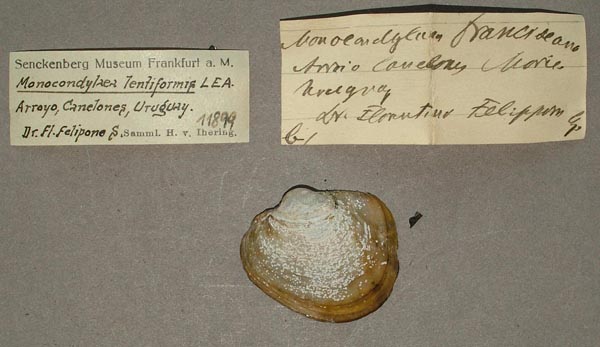 Senckenberg Museum Frankfurt a. M.
Monocondylea lentiformis LEA.
Arroyo, Canelones, Uruguay.
11899
Dr. Fl. Felipone S., Samml. H. v. Ihering.
Monocondylaea franciscana
Arroio Canelones
Uruguay
Dr. Florentino Felippone